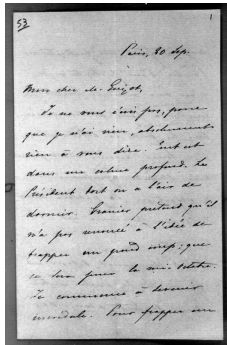 53
1
Paris, 20 Sep.
Mon cher M. Guizot,
Je ne vous écris pas, parce
que je n'ai rien, absolument
rien à vous dire. Tout est
dans un calme profond. Le
Président dort ou a l'air de
dormir. prétend qu'il
n'a pas renoncé à l'idée de
frapper un grand coup; que
ce sera pour la mi-Octobre.
Je commence à devenir
incrédule. Pour frapper un